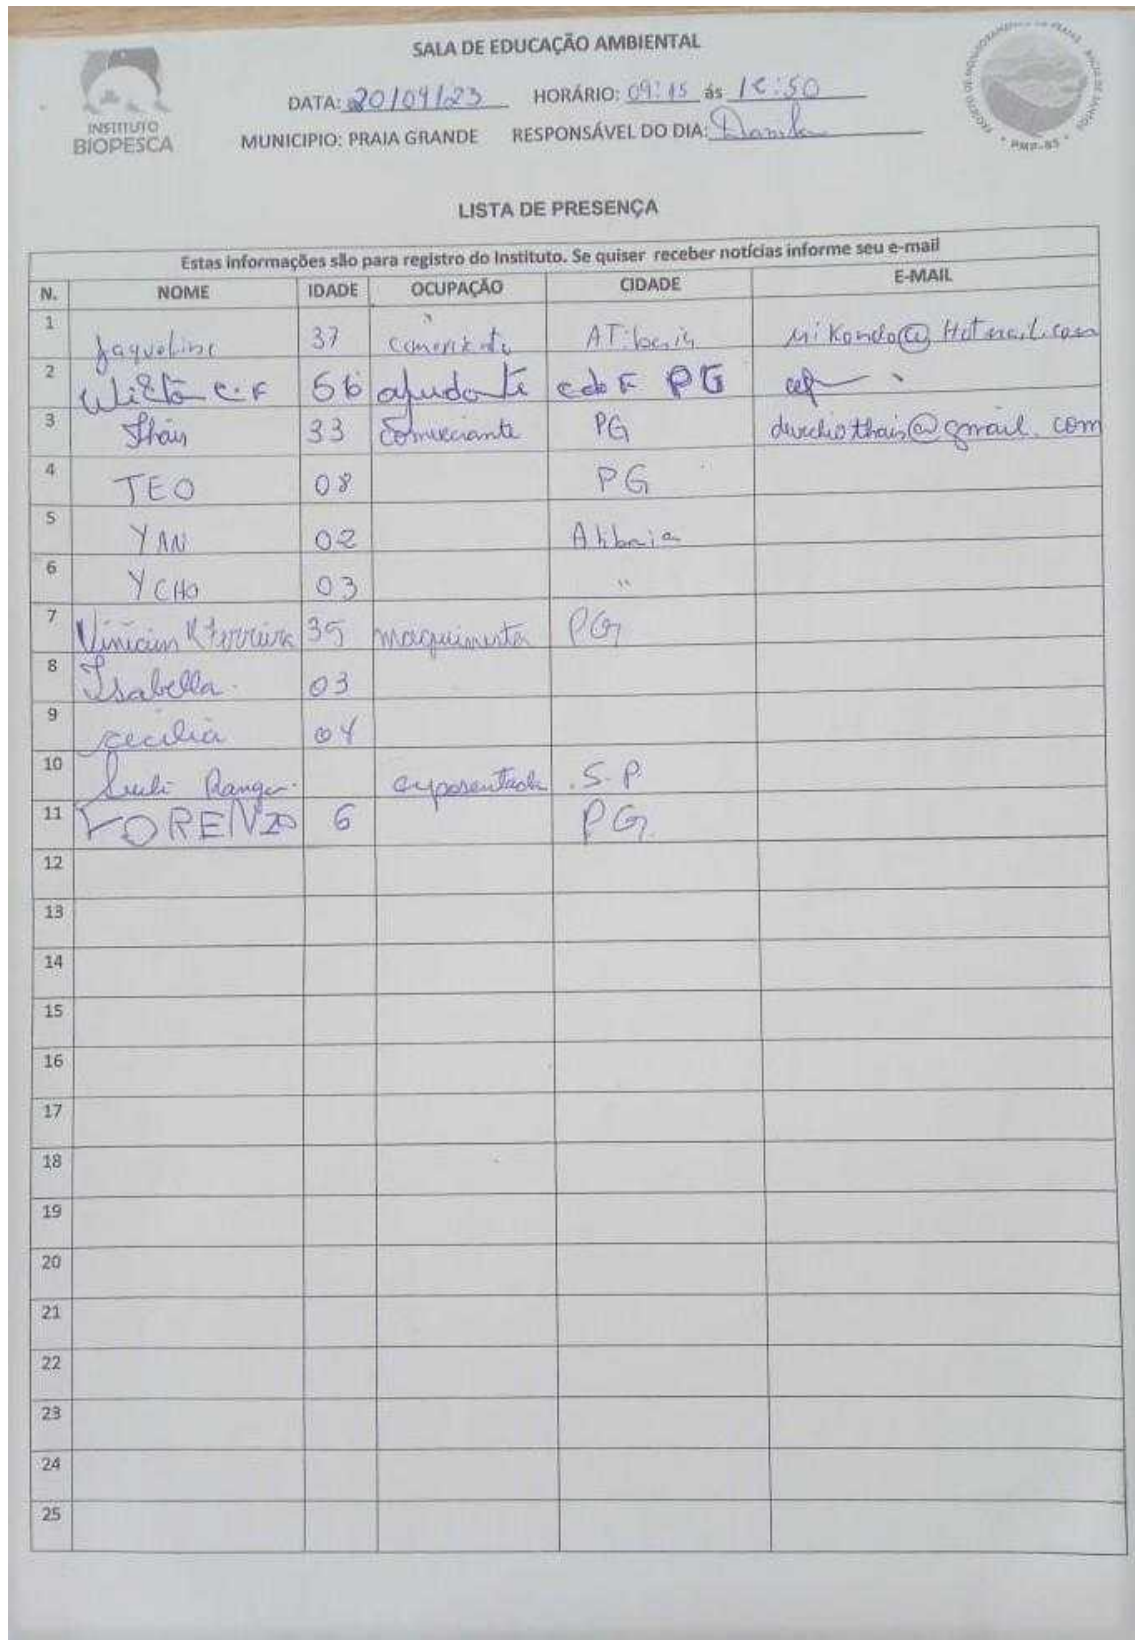 SALA DE EDUCAÇÃO AMBIENTAL
INSTITUTO
BIOPESCA
DATA: 20/04/23 HORÁRIO: 09:15 ás :50
MUNICIPIO: PRAIA GRANDE RESPONSÁVEL DO DIA:
PMP-BS
LISTA DE PRESENÇA
Estas informações são para registro do Instituto. Se quiser receber notícias informe seu e-mail
N. NOME IDADE OCUPAÇÃO CIDADE E-MAIL
1 Jaqueline 37 ATibaia Hotmail.com
2 C.F 56 ajudante PG
3 Thais 33 Comerciante PG @gmail.com
4 TEO 08 PG
5 YAN 02 Atibaia
6 YCHO 03 "
7 Vinicius R Ferreira 35 maquinista PG
8 Isabella 03
9 cecilia 04
10 aposentada S.P.
11 LORENZO 6 PG
12
13
14
15
16
17
18
19
20
21
22
23
24
25